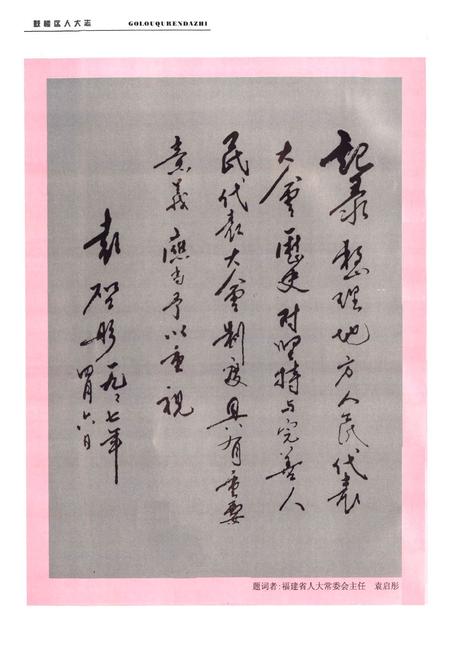 鼓楼区人大志
GOLOUQURENDAZHI
記录整理地方人民代表
大會歷史对坚持与完善人
民代表大會制度具有重要
意義應当予以重視
袁啓彤 一九九七年
四月六日
题词者:福建省人大常委会主任 袁启彤